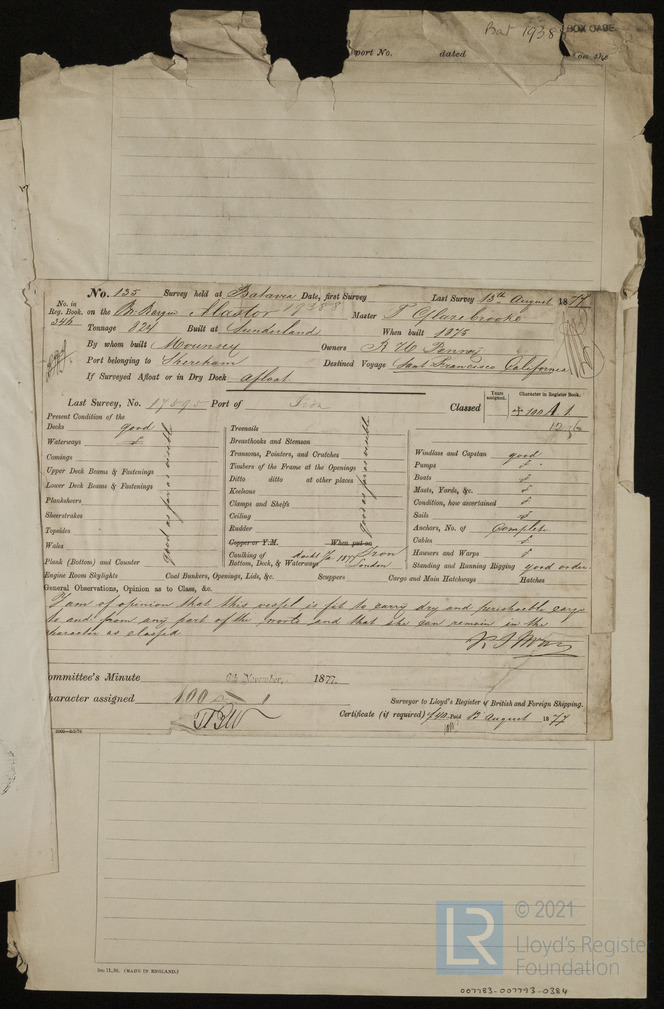 Bat 1938 BOX CASE
port No. dated
No. 135 Survey held at Batavia Date, first Survey Last Survey 13th August 1877
No. in Reg. Book. 346 on the Bk Barque Alastor Master T Glazebrooke
Tonnage 824 Built at Sunderland When built 1875
By whom built Mounsey Owners R H Penney
Port belonging to Shoreham Destined Voyage Sant Francisco California
If Surveyed Afloat or in Dry Dock afloat
Last Survey, No. 17595 Port of Classed Years assigned. Character in Register Book.
100 A 1
Present Condition of the
Decks good
Waterways
Comings
Upper Deck Beams & Fastenings
Lower Deck Beams & Fastenings
Plansheers
Sheerstrakes
Topsides
Wales
Plank (Bottom) and Counter
good as far as visible
Treenails
Breasthooks and Stemson
Transoms, Pointers, and Crutches
Timbers of the Frame at the Openings
Ditto ditto at other places
Keelsons
Clamps and Shelfs
Ceiling
Rudder
Copper or Y.M. When put on
Caulking of Bottom, Deck, & Waterways 1877 Iron London
good as far as visible
Windlass and Capstan good
Pumps
Boats
Masts, Yards, &c.
Condition, how ascertained
Sails
Anchors, No. of Complete
Cables
Hawsers and Warps
Standing and Running Rigging good order
Engine Room Skylights Coal Bunkers, Openings, Lids, &c. Scuppers Cargo and Main Hatchways Hatches
General Observations, Opinion as to Class, &c.
I am of opinion that this vessel is fit to carry dry and perishable cargo
to and from any part of the world and that she can remain in the
character as classed
ommittee's Minute November, 1877.
haracter assigned 100 1
Surveyor to Lloyd's Register of British and Foreign Shipping.
Certificate (if required) Paid 13 August 1877
© 2021
LR Lloyd's Register
Foundation
(MADE IN ENGLAND.)
007783-007793-0384